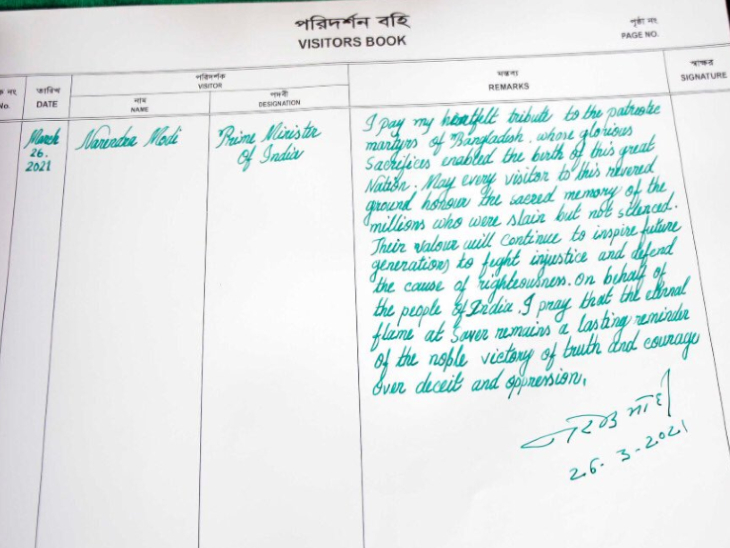 পরিদর্শন বহি
VISITORS BOOK
পৃষ্ঠা নং
PAGE NO.
ক নং
No.
তারিখ
DATE
পরিদর্শক
VISITOR
নাম
NAME
পদবী
DESIGNATION
মন্তব্য
REMARKS
স্বাক্ষর
SIGNATURE
March
26.
2021
Narendra Modi
Prime Minister
Of India
I pay my heartfelt tribute to the patriotic
martyrs of Bangladesh, whose glorious
Sacrifices enabled the birth of this great
Nation. May every visitor to this revered
ground honour the sacred memory of the
millions who were slain but not silenced.
Their valour will continue to inspire future
generations to fight injustice and defend
the cause of righteousness. On behalf of
the people of India, I pray that the eternal
flame at Saver remains a lasting reminder
of the noble victory of truth and courage
over deceit and oppression.
26-3-2021